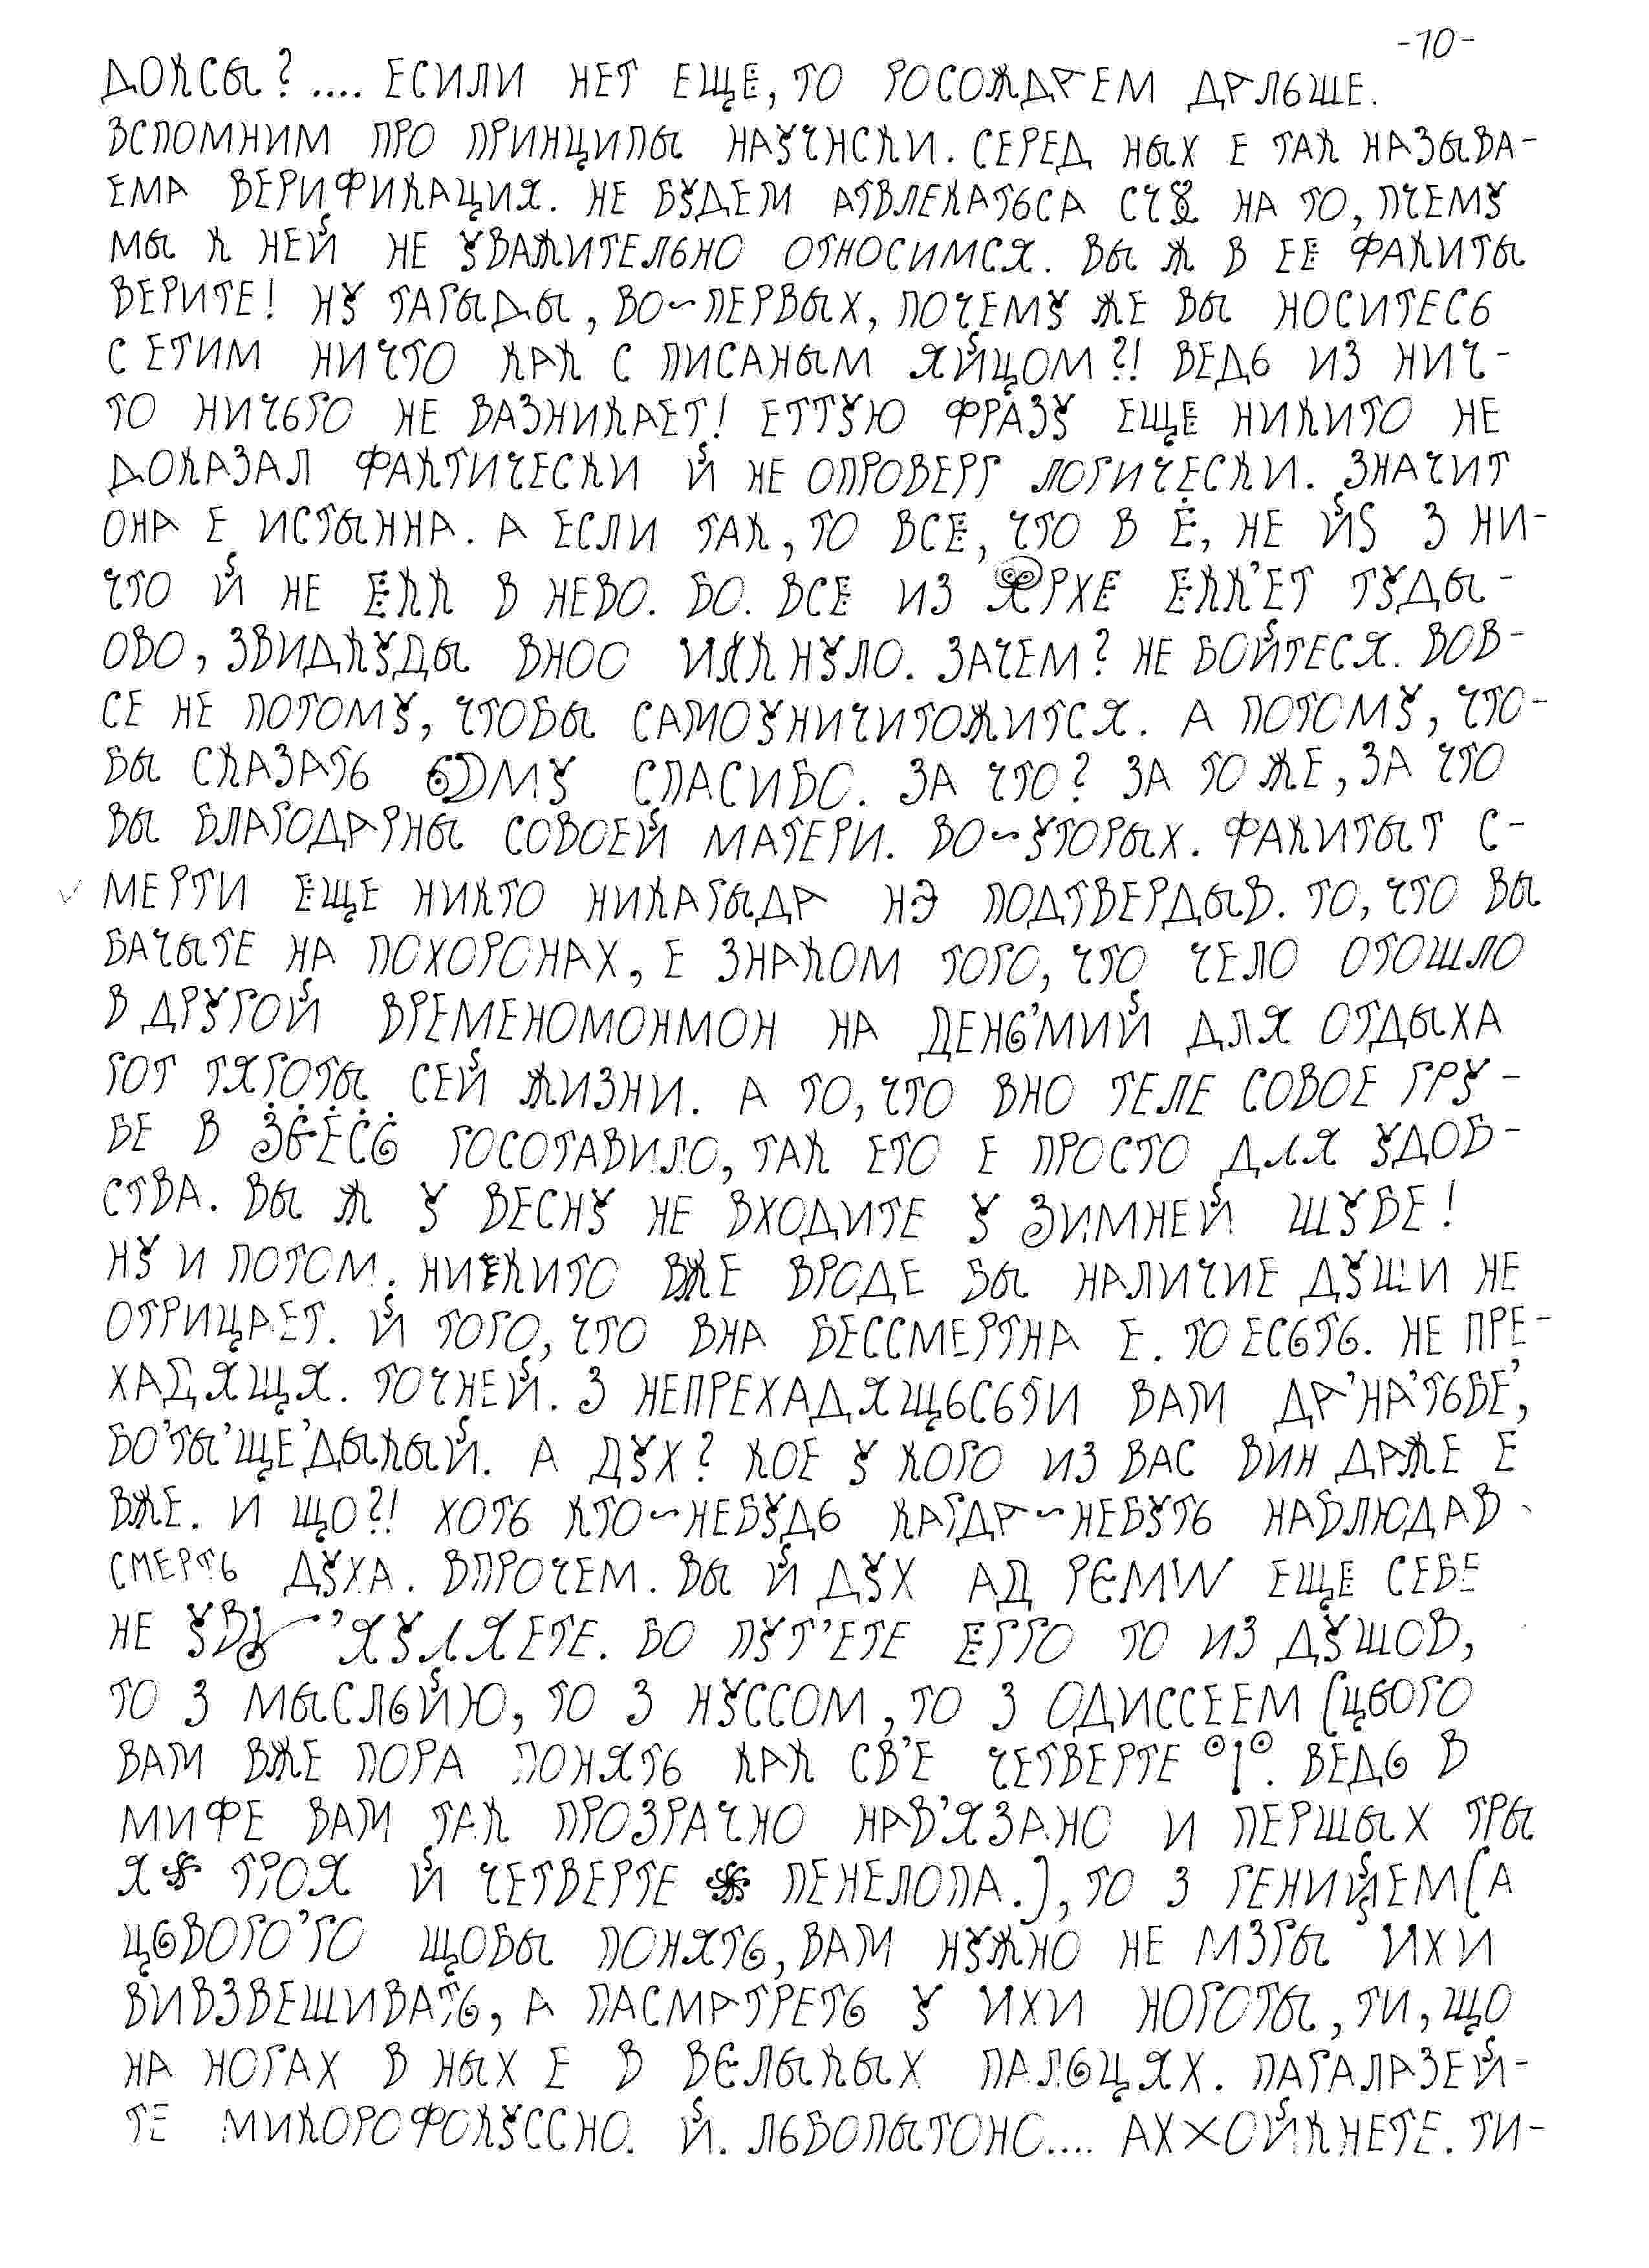 -10-
ДОКСЫ?.... ЕСИЛИ НЕТ ЕЩЕ, ТО РОСОЖДАЕМ ДАЛЬШЕ.
ВСПОМНИМ ПРО ПРИНЦИПЫ НАУЧНСКИ. СЕРЕД НЫХ Е ТАК НАЗЫВА-
ЕМА ВЕРИФИКАЦИЯ. НЕ БУДЕМ АТВЛЕКАТЬСА НА ТО, ПЧЕМУ
МЫ К НЕЙ НЕ УВАЖИТЕЛЬНО ОТНОСИМСЯ. ВЫ Ж В ЕЕ ФАКИТЫ
ВЕРИТЕ! НУ ТАГЫДЫ, ВО~ПЕРВЫХ, ПОЧЕМУ ЖЕ ВЫ НОСИТЕСЬ
С ЕТИМ НИЧТО КАК С ПИСАНЫМ ЯЙЦОМ?! ВЕДЬ ИЗ НИЧ-
ТО НИЧЬГО НЕ ВАЗНИКАЕТ! ЕТТУЮ ФРАЗУ ЕЩЕ НИКИТО НЕ
ДОКАЗАЛ ФАКТИЧЕСКИ Й НЕ ОПРОВЕРГ ЛОГИЧЕСКИ. ЗНАЧИТ
ОНА Е ИСТЫННА. А ЕСЛИ ТАК, ТО ВСЕ, ЧТО В Ё, НЕ З НИ-
ЧТО Й НЕ ЕКК В НЕВО. БО. ВСЕ ИЗ ЯРХЕ ЕКК'ЕТ ТУДЫ-
ОВО, ЗВИДКУДЫ ВНОО НУЛО. ЗАЧЕМ? НЕ БОЙТЕСЯ. ВОВ-
СЕ НЕ ПОТОМУ, ЧТОБЫ САМОУНИЧИТОЖИТСЯ. А ПОТОМУ, ЧТО-
БЫ СКАЗАТЬ СПАСИБО. ЗА ЧТО? ЗА ТО ЖЕ, ЗА ЧТО
ВЫ БЛАГОДАРНЫ СОВОЕЙ МАТЕРИ. ВО~УТОРЫХ. ФАКИТЫТ С-
МЕРТИ ЕЩЕ НИКТО НИКАГЫДА НЭ ПОДТВЕРДЫВ. ТО, ЧТО ВЫ
БАЧЫТЕ НА ПОХОРОНАХ, Е ЗНАКОМ ТОГО, ЧТО ЧЕЛО ОТОШЛО
В ДРУГОЙ ВРЕМЕНОМОНМОН НА ДЕНЬ'МИЙ ДЛЯ ОТДЫХА
ГОТ ТЯГОТЫ СЕЙ ЖИЗНИ. А ТО, ЧТО ВНО ТЕЛЕ СОВОЕ ГРУ-
БЕ В ГОСОТАВИЛО, ТАК ЕТО Е ПРОСТО ДЛЯ УДОБ-
СТВА. ВЫ Ж У ВЕСНУ НЕ ВХОДИТЕ У ЗИМНЕЙ ШУБЕ!
НУ И ПОТОМ. ВЖЕ ВРОДЕ БЫ НАЛИЧИЕ ДУШИ НЕ
ОТРИЦАЕТ. Й ТОГО, ЧТО ВНА БЕССМЕРТНА Е. ТО ЕСЬТЬ. НЕ ПРЕ-
ХАДЯЩЯ. ТОЧНЕЙ. З НЕПРЕХАДЯЩЬСЬТИ ВАМ ДА'НА'ТЬБЕ',
БО'ТЫ'ЩЕ'ДЫКЫЙ. А ДУХ? КОЕ У КОГО ИЗ ВАС ВИН ДАЖЕ Е
ВЖЕ. И ЩО?! ХОТЬ КТО~НЕБУДЬ КАГДА~НЕБУТЬ НАБЛЮДАВ
СМЕРТЬ ДУХА. ВПРОЧЕМ. ВЫ Й ДУХ АД РЄМW ЕЩЕ СЕБЕ
НЕ . БО ПУТ'ЕТЕ ЕГГО ТО ИЗ ДУШОВ,
ТО З МЫСЛЬЙЮ, ТО З НУССОМ, ТО З ОДИССЕЕМ (ЦЬОГО
ВАМ ВЖЕ ПОРА ПОНЯТЬ КАК СВ'Е ЧЕТВЕРТЕ. ВЕДЬ В
МИФЕ ВАМ ТАК ПРОЗРАЧНО НАВ'ЯЗАНО И ПЕРШЫХ ТРЫ
Я ТРОЯ Й ЧЕТВЕРТЕ ПЕНЕЛОПА.), ТО З ГЕНИЙЕМ (А
ЦЬВОГО'ГО ЩОБЫ ПОНЯТЬ, ВАМ НУЖНО НЕ МЗГЫ ИХИ
ВИВЗВЕШИВАТЬ, А ПАСМАТРЕТЬ У ИХИ НОГОТЫ, ТИ, ЩО
НА НОГАХ В НЫХ Е В ВЄЛЫКЫХ ПАЛЬЦЯХ. ПАГАЛАЗЕЙ-
ТЕ МИКОРОФОКУССНО. Й. ЛЬВОПЫТОНО.... АХХОЙКНЕТЕ. ТИ-